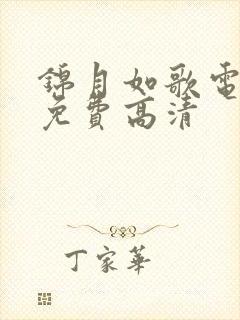 錦月如歌電
免費高清
丁家華